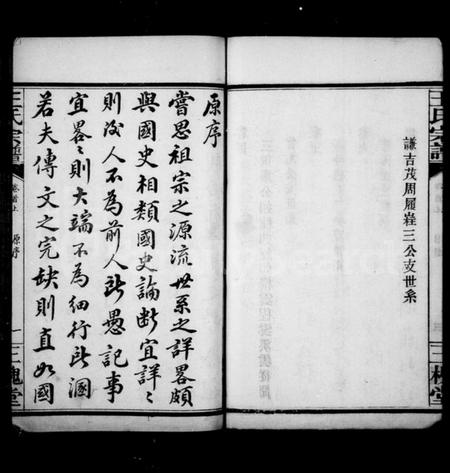 王氏宗譜
三槐堂
謙吉茂周履㙓三公支世系
原序
嘗思祖宗之源流世系之詳畧頗
與國史相類國史論斷宜詳〻
則後人不為前人所愚記事
宜畧〻則大端不為細行所溷
若夫傳文之完缺則直如國
王氏宗譜
卷首上
原序
一
三槐堂